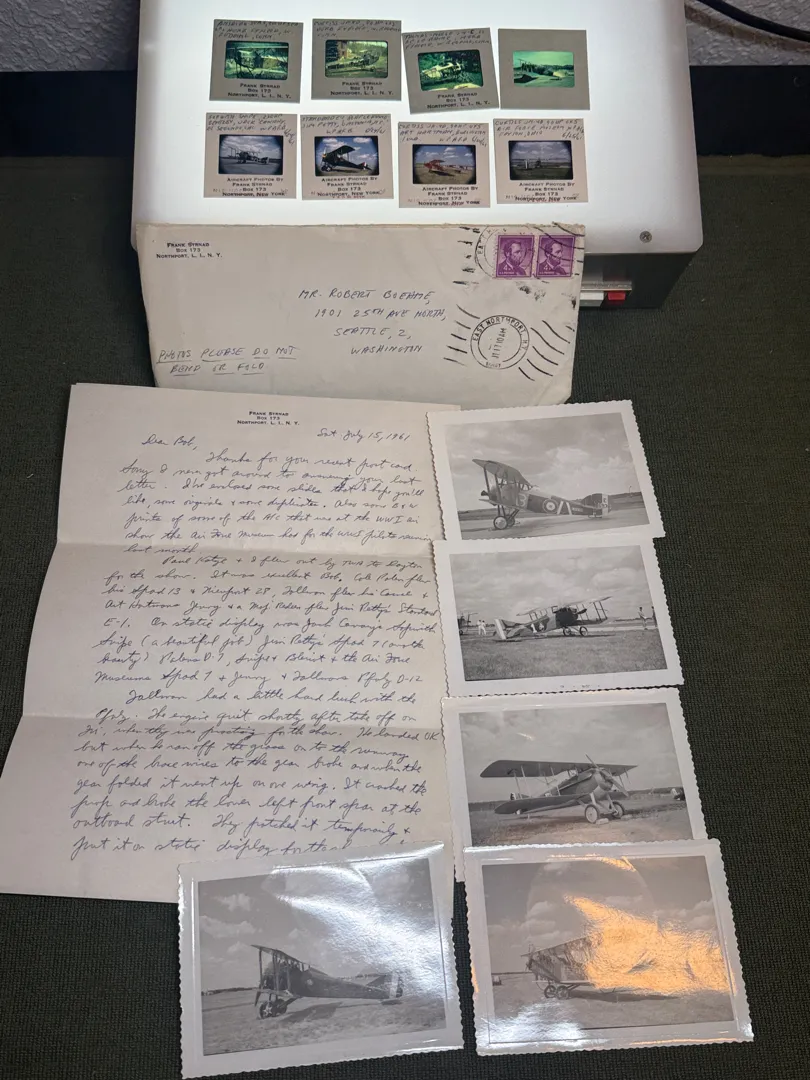 FRANK STRNAD
BOX 173
NORTHPORT, L. I., N. Y.
FRANK STRNAD
BOX 173
NORTHPORT, L. I., N. Y.
FRANK STRNAD
BOX 173
NORTHPORT, L. I., N. Y.
AIRCRAFT PHOTOS BY
FRANK STRNAD
BOX 173
NORTHPORT, NEW YORK
AIRCRAFT PHOTOS BY
FRANK STRNAD
BOX 173
NORTHPORT, NEW YORK
AIRCRAFT PHOTOS BY
FRANK STRNAD
BOX 173
NORTHPORT, NEW YORK
AIRCRAFT PHOTOS BY
FRANK STRNAD
BOX 173
NORTHPORT, NEW YORK
FRANK STRNAD
BOX 173
NORTHPORT, L. I., N. Y.
MR. ROBERT BOEHME,
1901 25TH AVE NORTH,
SEATTLE, 2,
WASHINGTON
PHOTOS PLEASE DO NOT
BEND OR FOLD
EAST NORTHPORT, N.Y.
FRANK STRNAD
BOX 173
NORTHPORT, L. I., N. Y.
Sat July 15, 1961
Dear Bob,
Thanks for your recent post card.
Sorry I never got around to answering your last
letter. I've enclosed some slides that I hope you'll
like, some originals & some duplicates. Also some B & W
prints of some of the A/C that were at the WWI air
show the Air Force Museum had for the WWI pilots reunion
last month.
Paul & I flew out by TWA to Dayton
for the show. It was excellent Bob. Cole Palen flew
his Spad 13 & Nieuport 28, Tallman flew his Camel &
Art Hartman's Jenny & flew Jim Petty's Standard
E-1. On static display was Jack Canary's Sopwith
Snipe (a beautiful job) Jim Petty's Spad 7 (another
beauty) Palen's D-7, Snipe & Bleriot & the Air Force
Museums Spad 7 & Jenny & Tallmans Pfalz D-12
Tallman had a little hard luck with the
Pfalz. The engine quit shortly after take off on
Fri. when they were practicing for the show. He landed OK
but when he ran off the grass on to the runway
one of the brace wires to the gear broke and when the
gear folded it went up on one wing. It cracked the
prop and broke the lower left front spar at the
outboard strut. They patched it temporarily &
put it on static display for the